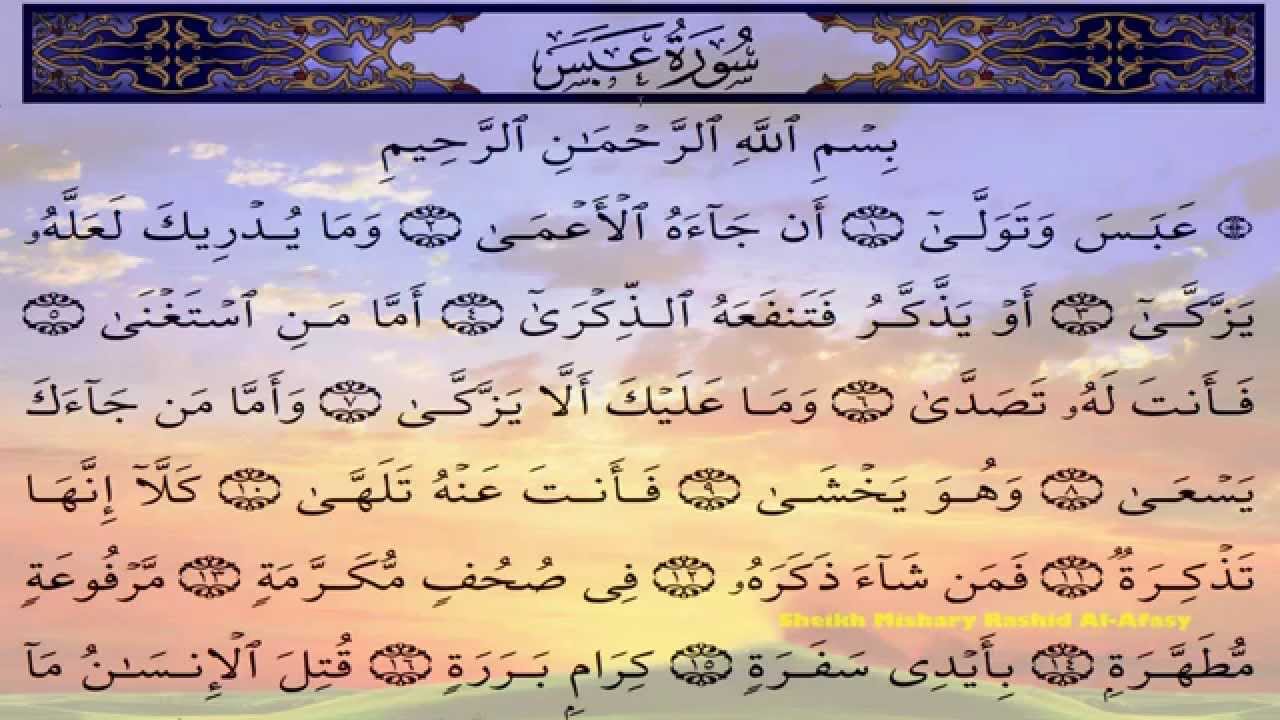 سُورَةُ عَبَسَ
بِسْمِ ٱللَّهِ ٱلرَّحْمَـٰنِ ٱلرَّحِيمِ
۞ عَبَسَ وَتَوَلَّىٰٓ ١ أَن جَآءَهُ ٱلْأَعْمَىٰ ٢ وَمَا يُدْرِيكَ لَعَلَّهُۥ
يَزَّكَّىٰٓ ٣ أَوْ يَذَّكَّرُ فَتَنفَعَهُ ٱلذِّكْرَىٰٓ ٤ أَمَّا مَنِ ٱسْتَغْنَىٰ ٥
فَأَنتَ لَهُۥ تَصَدَّىٰ ٦ وَمَا عَلَيْكَ أَلَّا يَزَّكَّىٰ ٧ وَأَمَّا مَن جَآءَكَ
يَسْعَىٰ ٨ وَهُوَ يَخْشَىٰ ٩ فَأَنتَ عَنْهُ تَلَهَّىٰ ١٠ كَلَّآ إِنَّهَا
تَذْكِرَةٌ ١١ فَمَن شَآءَ ذَكَرَهُۥ ١٢ فِى صُحُفٍ مُّكَرَّمَةٍ ١٣ مَّرْفُوعَةٍ
Sheikh Mishary Rashid Al-Afasy
مُّطَهَّرَةٍۭ ١٤ بِأَيْدِى سَفَرَةٍ ١٥ كِرَامٍۭ بَرَرَةٍ ١٦ قُتِلَ ٱلْإِنسَـٰنُ مَآ